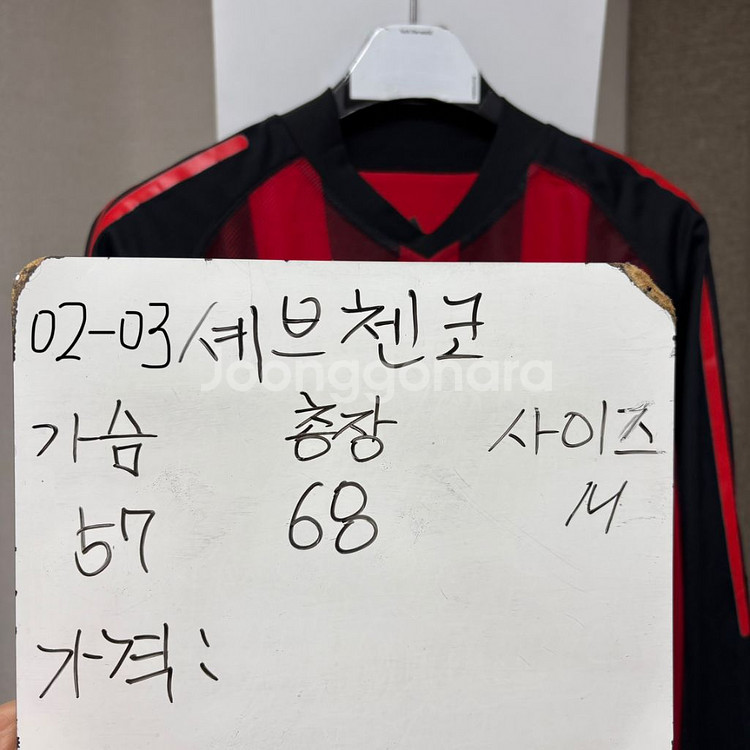 02-03 셰브첸코
Joonggonara
가슴 총장 사이즈
57 68 M
가격: